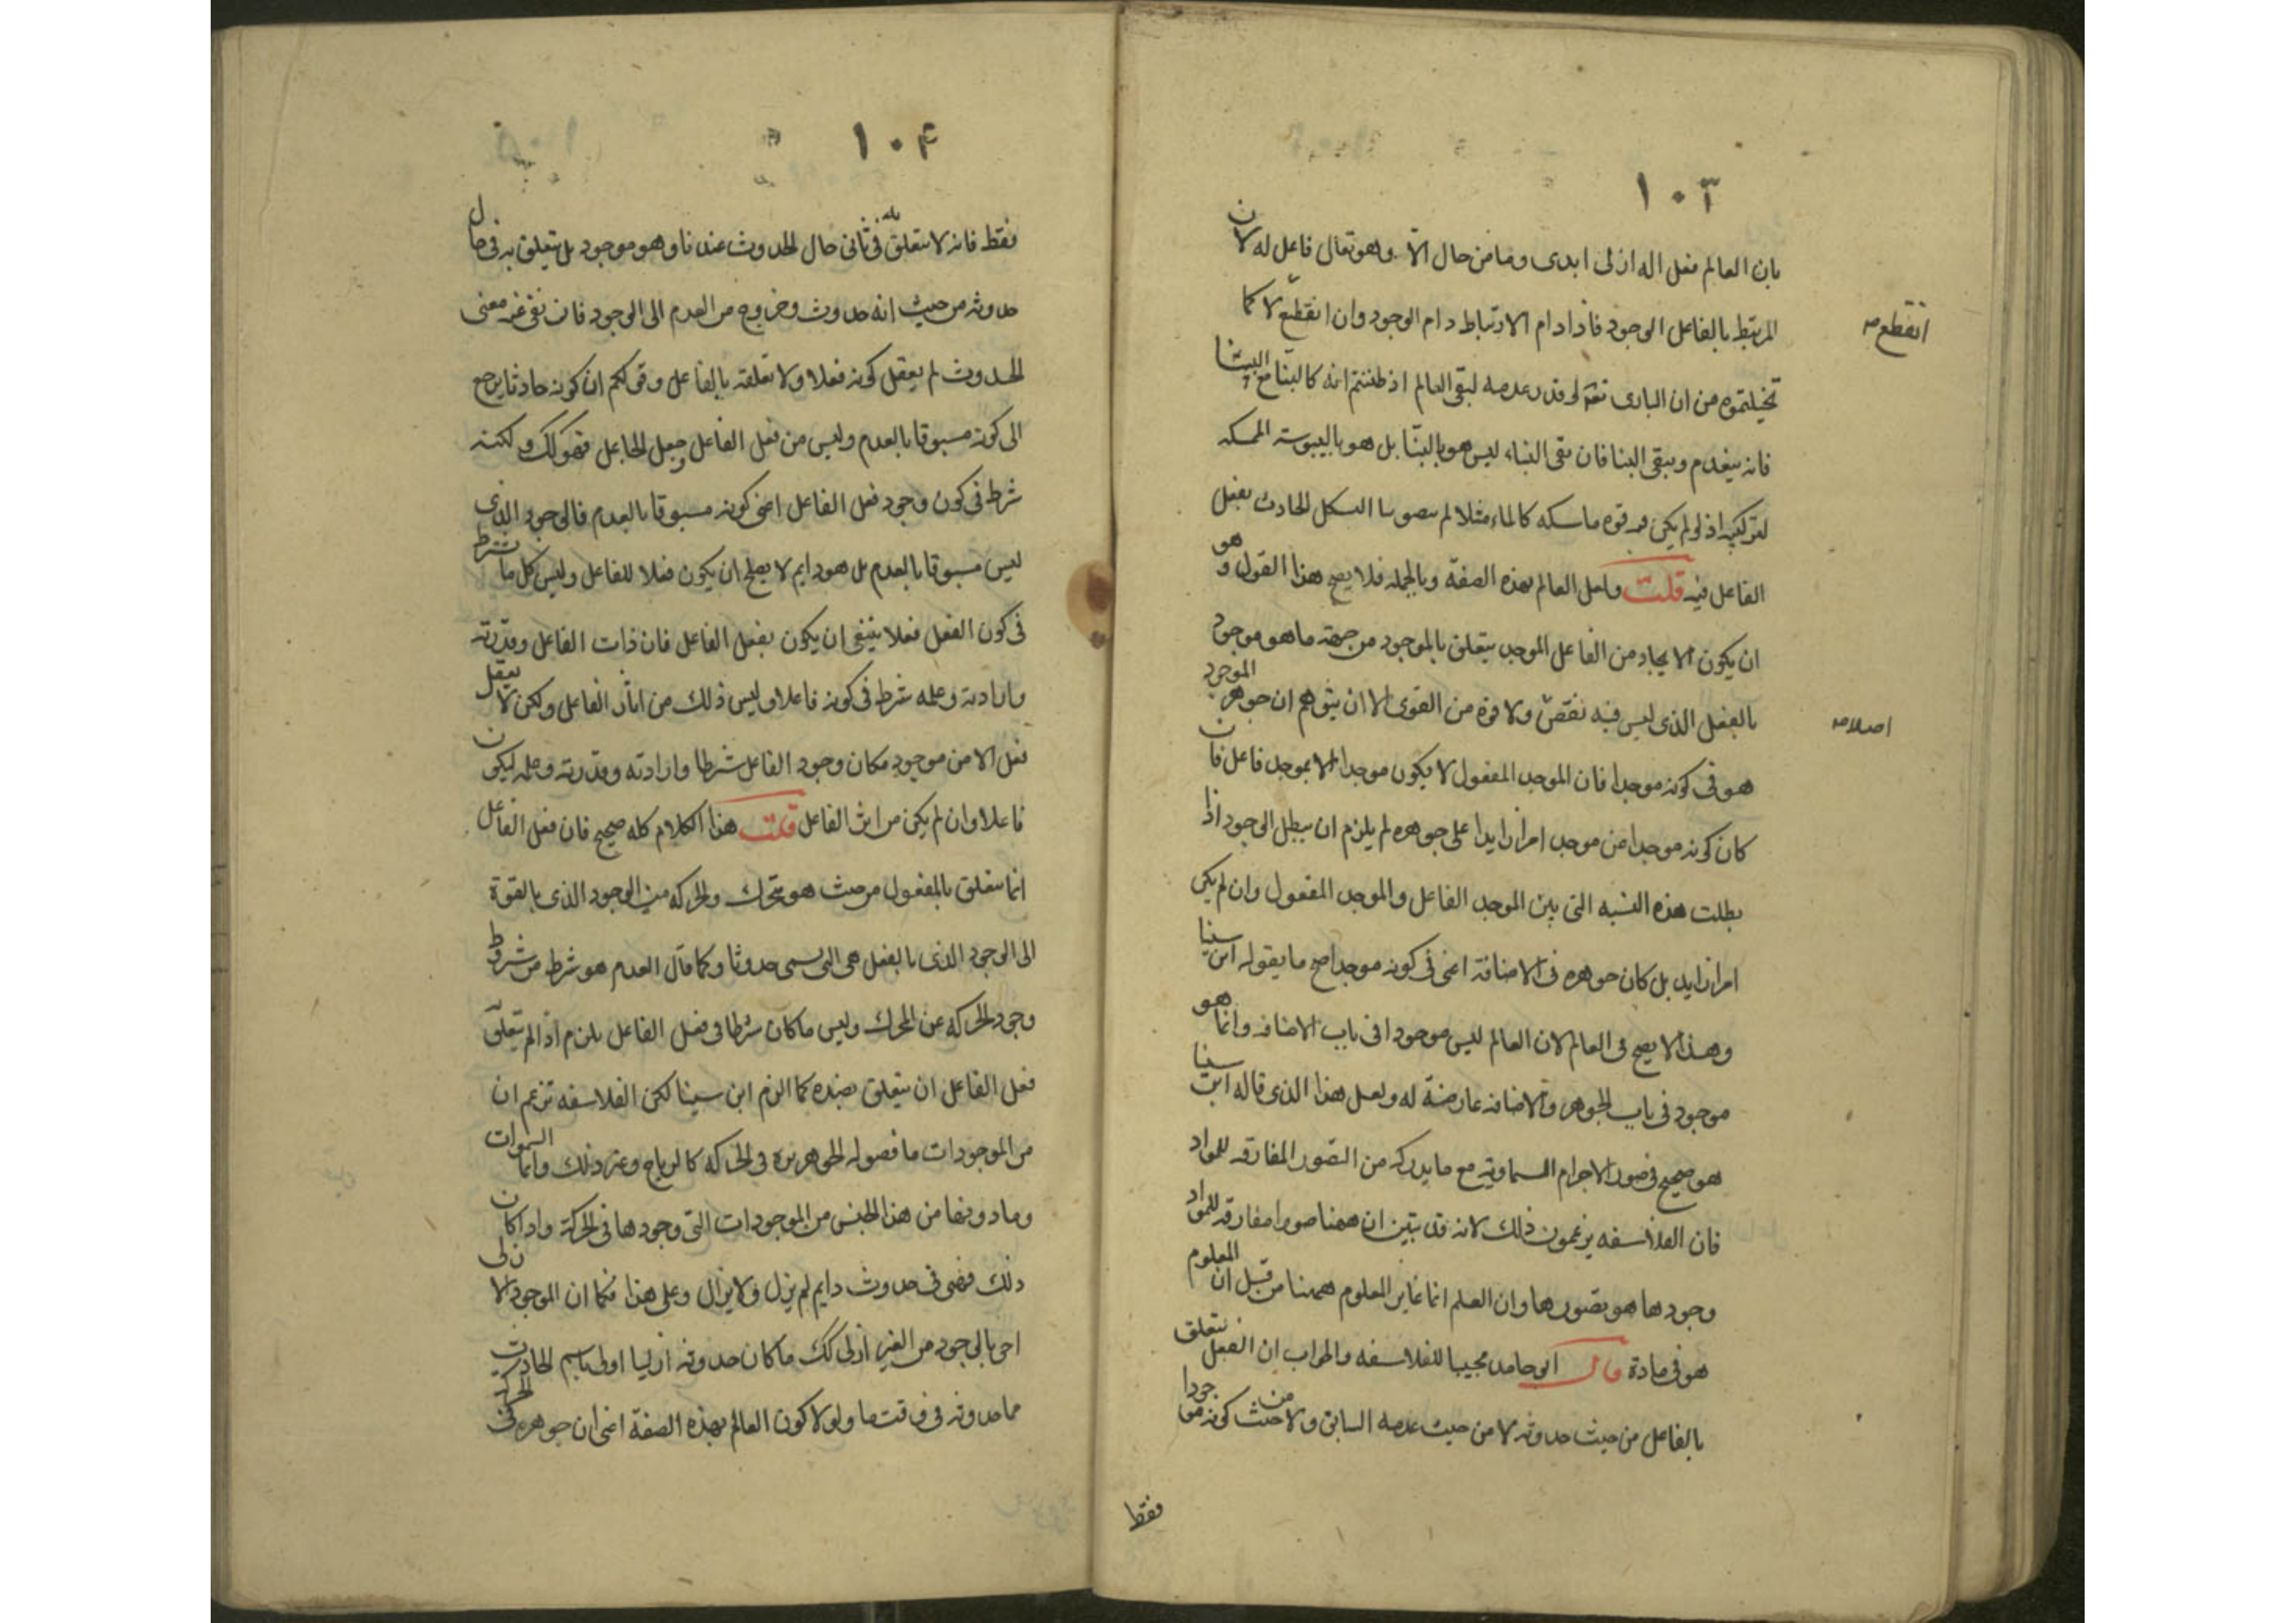 ١٠٣
بان العالم فعل اله ازلى ابدى وما من حال الا وهو تعالى فاعل له لان
المرتبط بالفاعل الوجود فاذا دام الارتباط دام الوجود وان انقطع لا كما
انقطع صح
تخيلتموه من ان البارى تعه لو قدر عدمه لبقى العالم اذ ظننتم انه كالبنّا مع البيت
فانه ينعدم ويبقى البنا فان بقى البناء ليس هو بالبنّا بل هو باليبوسة الممسكه
لتركيبه اذ لو لم يكن فيه قوه ماسكه كالماء مثلا لم يتصور بقا الشكل الحادث بفعل
الفاعل فيه قلت ولعل العالم بهذه الصفة وبالجمله فلا يصح هذا القول وهو
ان يكون الايجاد من الفاعل الموجد يتعلق بالموجود من جهة ما هو موجود
بالفعل الذى ليس فيه نقص ولا قوة من القوى الا ان يتوهم ان جوهر الموجود
اصلا صح
هو فى كونه موجدا فان الموجد المفعول لا يكون موجدا الا بموجد فاعل فان
كان كونه موجدا عن موجد امرا زايدا على جوهره لم يلزم ان يبطل الوجود اذا
بطلت هذه النسبه التى بين الموجد الفاعل والموجد المفعول وان لم يكن
امرا زايد بل كان جوهره فى الاضافة اعنى فى كونه موجدا صح ما يقوله ابن سينا
وهذا لا يصح فى العالم لان العالم ليس موجودا فى باب الاضافه وانما هو
موجود فى باب الجوهر والاضافه عارضة له ولعل هذا الذى قاله ابن سينا
هو صحيح فى صور الاجرام السماويه مع ما يدركه من الصور المفارقه للمواد
فان الفلاسفه يزعمون ذلك لانه قد تبين ان ههنا صورا مفارقه للمواد
وجودها هو تصورها وان العلم انما غاير المعلوم ههنا من قبل ان المعلوم
هو فى مادة قال ابو حامد مجيبا للفلاسفه والجواب ان الفعل يتعلق
بالفاعل من حيث حدوثه لا من حيث عدمه السابق ولا من حيث كونه موجودا
فقط
١٠٤
فقط فانه لا يتعلق به فى ثانى حال الحدوث عندنا وهو موجود بل يتعلق به فى حال
حدوثه من حيث انه حدوث وخروج من العدم الى الوجود فان نفى عنه معنى
الحدوث لم يعقل كونه فعلا ولا تعلقه بالفاعل وقولكم ان كونه حادثا يرجع
الى كونه مسبوقا بالعدم وليس من فعل الفاعل وجعل الجاعل فهو كك ولكنه
شرط فى كون وجود فعل الفاعل اعنى كونه مسبوقا بالعدم فالوجود الذى
ليس مسبوقا بالعدم بل هو دايم لا يصلح ان يكون فعلا للفاعل وليس كل ما شرط
فى كون الفعل فعلا ينبغى ان يكون بفعل الفاعل فان ذات الفاعل وقدرته
وارادته وعلمه شرط فى كونه فاعلا وليس ذلك من اثار الفاعل ولكن لا يعقل
فعل الا من موجود فكان وجود الفاعل شرطا وارادته وقدرته وعلمه ليكون
فاعلا وان لم يكن من اثر الفاعل قلت هذا الكلام كله صحيح فان فعل الفاعل
انما يتعلق بالمفعول من حيث هو متحرك والحركه من الوجود الذى بالقوة
الى الوجود الذى بالفعل هى التى تسمى حدوثا وكما قال العدم هو شرط من شروط
وجود الحركه عن المحرك وليس ما كان شرطا فى فعل الفاعل يلزم اذا لم يتعلق
فعل الفاعل ان يتعلق بضده كما الزم ابن سينا لكن الفلاسفه تزعم ان
من الموجودات ما فصوله الجوهريه فى الحركه كالرياح وغير ذلك وانما السموات
وما دونها من هذا الجنس من الموجودات التى وجودها فى الحركة واذا كان
ذلك فهى فى حدوث دايم لم يزل ولا يزال وعلى هذا فكما ان الموجود الازلى
احق بالوجود من الغير ازلى كك ما كان حدوثه ازليا اولى باسم الحادث
مما حدوثه فى وقت ما ولو لا كون العالم بهذه الصفة اعنى ان جوهره فى الحركة